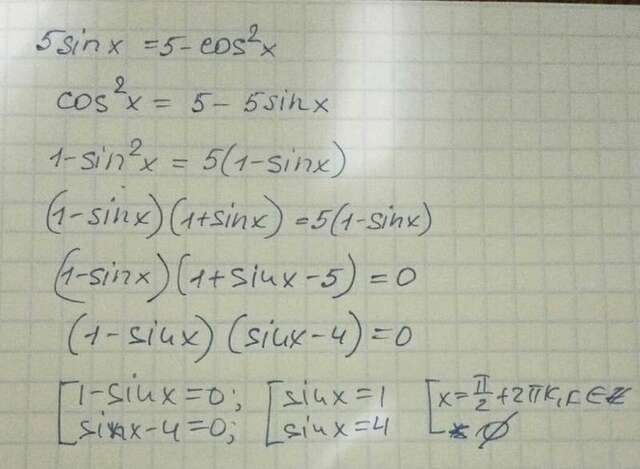 5sinx = 5-cos²x
cos²x = 5-5sinx
1-sin²x = 5(1-sinx)
(1-sinx)(1+sinx) = 5(1-sinx)
(1-sinx)(1+sinx-5) = 0
(1-sinx)(sinx-4) = 0
[1-sinx=0; [sinx=1 [x=π/2+2πk, k∈Z
[sinx-4=0; [sinx=4 [∅